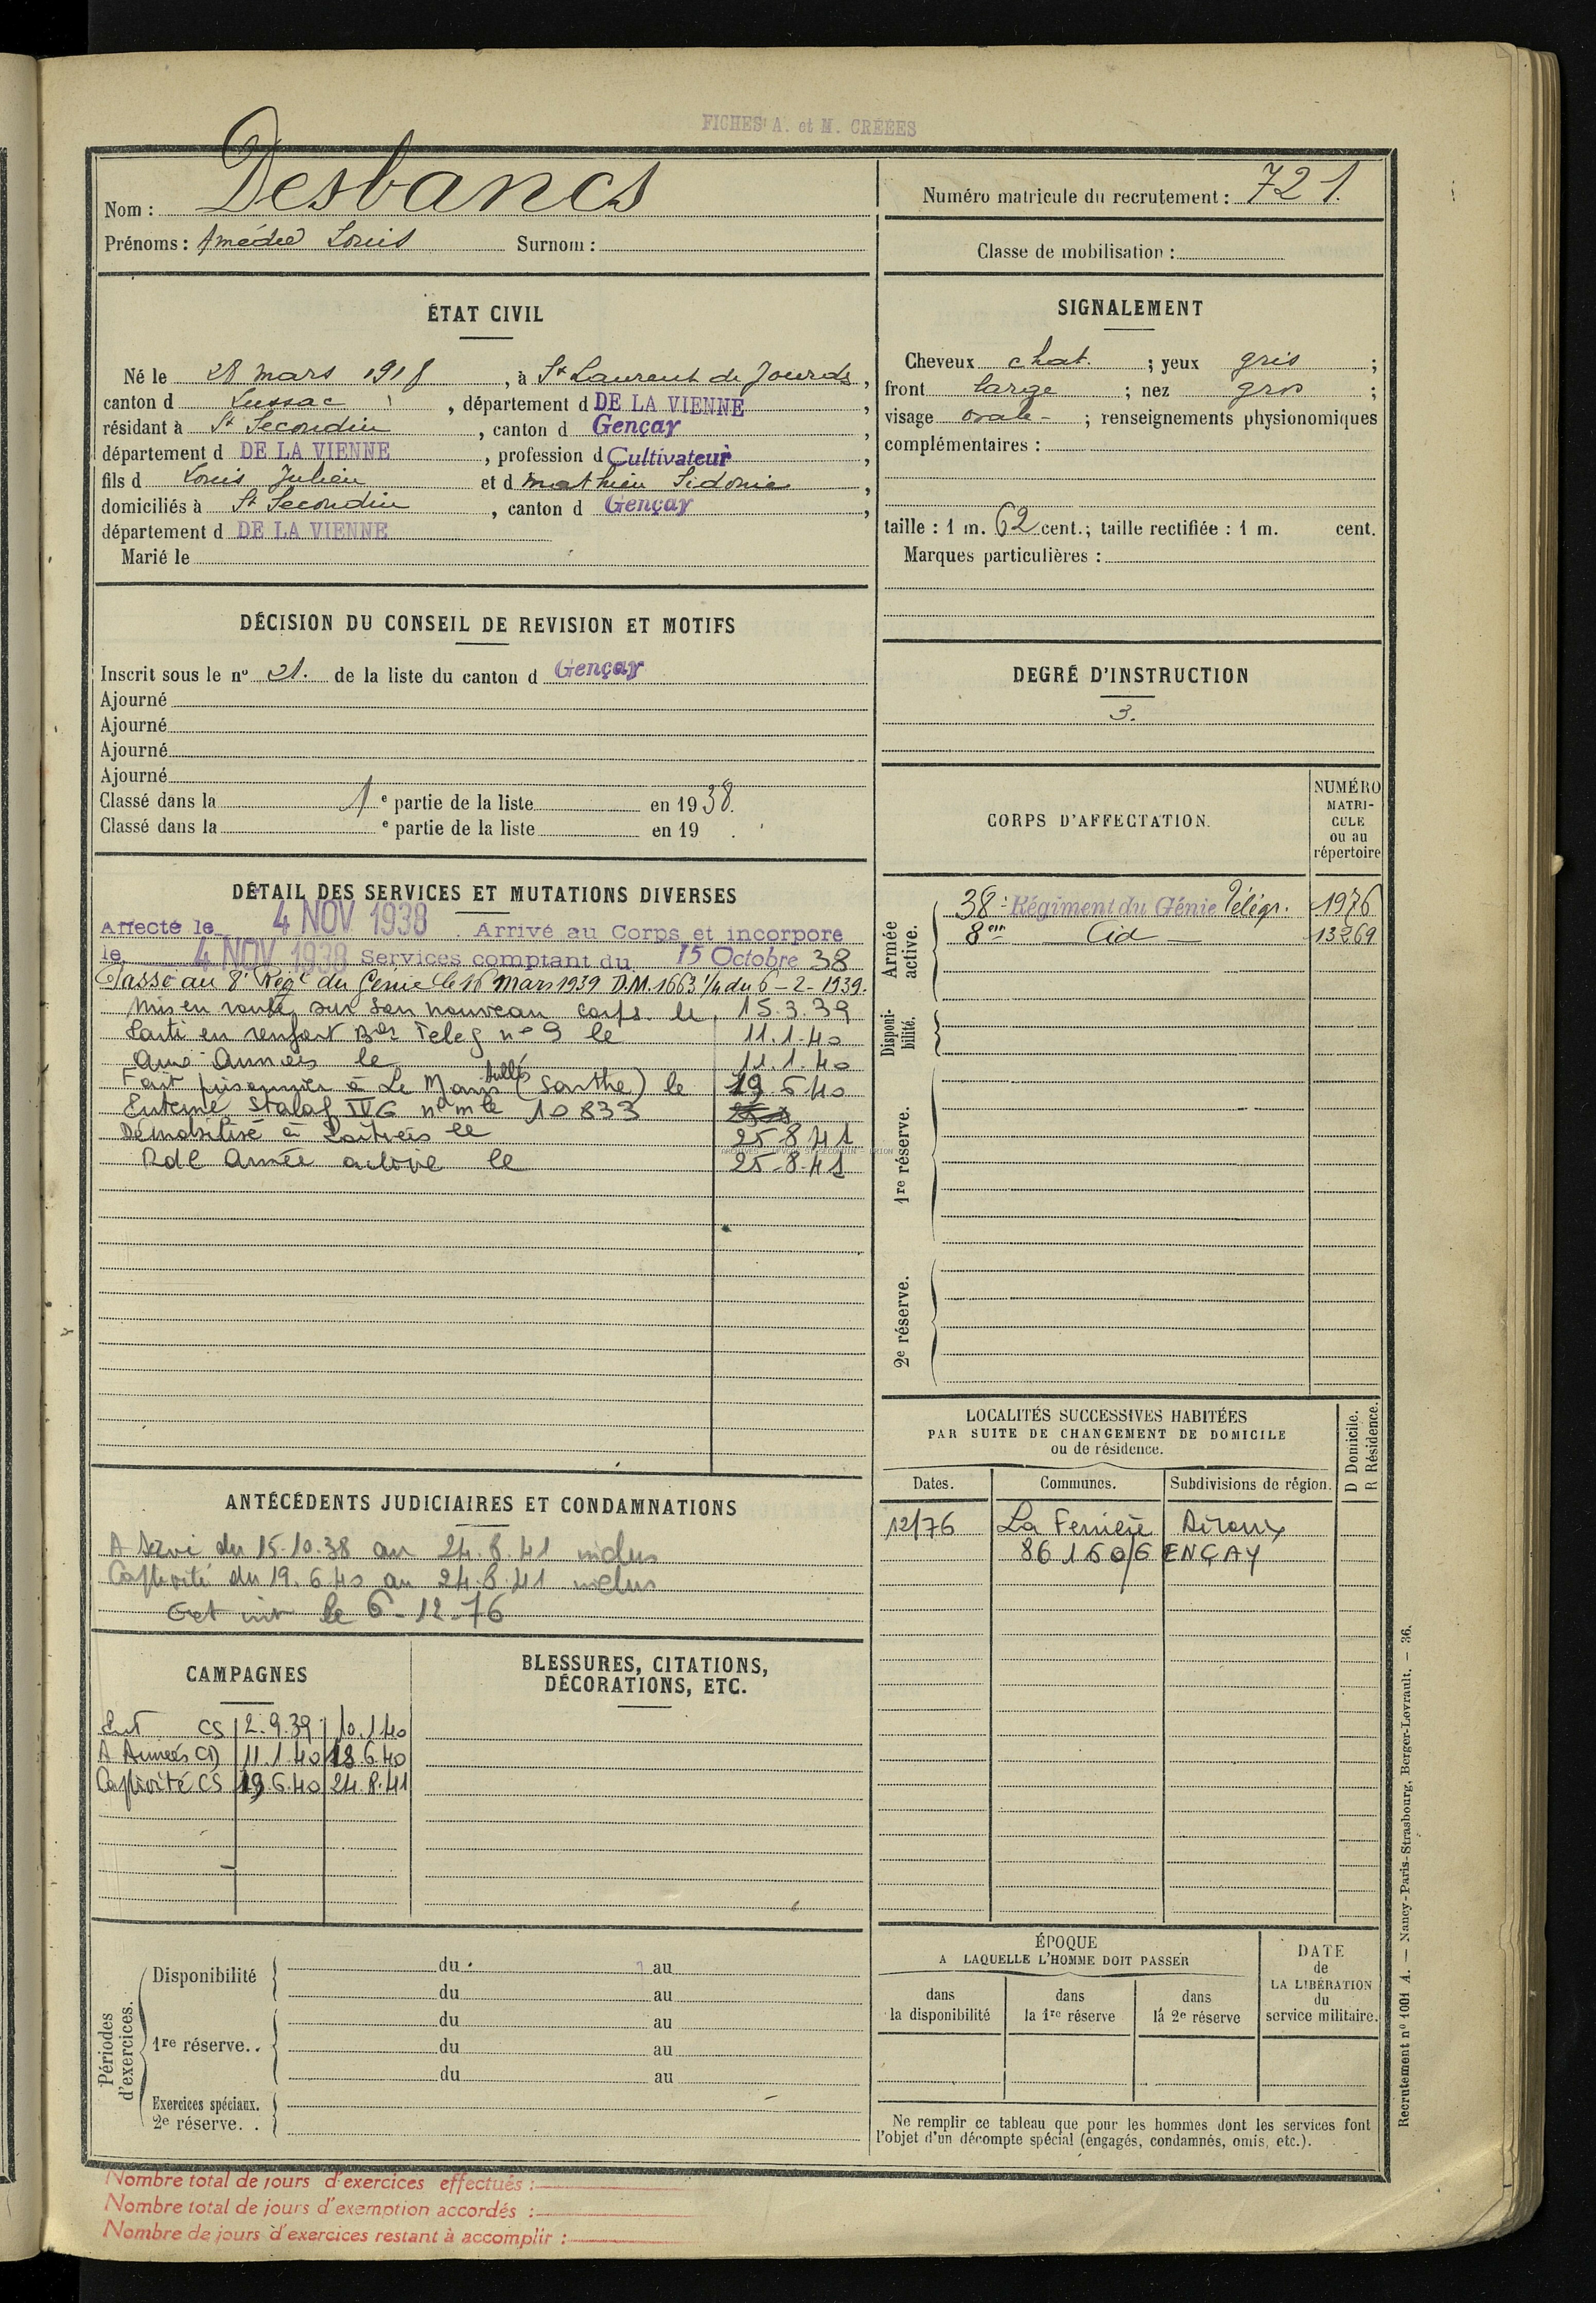 FICHES A. et M. CRÉÉES
Nom : Desbancs
Prénoms : Amédée Louis Surnom :
Numéro matricule du recrutement : 721.
Classe de mobilisation :
ÉTAT CIVIL
Né le 28 mars 1918, à St Laurent de Jourds,
canton d Lussac, département d DE LA VIENNE,
résidant à St Secondin, canton d Gençay,
département d DE LA VIENNE, profession d Cultivateur,
fils d Louis Julien et d mathieu Sidonie,
domiciliés à St Secondin, canton d Gençay,
département d DE LA VIENNE
Marié le
SIGNALEMENT
Cheveux chat. ; yeux gris ;
front large ; nez gros ;
visage ovale - ; renseignements physionomiques
complémentaires :
taille : 1 m. 62 cent.; taille rectifiée : 1 m. cent.
Marques particulières :
DÉCISION DU CONSEIL DE REVISION ET MOTIFS
Inscrit sous le no 21. de la liste du canton d Gençay
Ajourné
Ajourné
Ajourné
Ajourné
Classé dans la 1 e partie de la liste en 1938.
Classé dans la e partie de la liste en 19 .
DEGRÉ D'INSTRUCTION
3.
DÉTAIL DES SERVICES ET MUTATIONS DIVERSES
Affecté le 4 NOV 1938. Arrivé au Corps et incorporé
le 4 NOV 1938 Services comptant du 15 Octobre 38
Passé au 8e Régt du Génie le 16 Mars 1939 D.M. 1663 1/4 du 6-2-1939.
Mis en route sur son nouveau corps le 15.3.39
Parti en renfort Teleg no 9 le 11.1.40
Aux Armées le 11.1.40
Fait prisonnier à Le Mans (Sarthe) le 19.6.40
Interné Stalag IV G no mle 10833
Démobilisé à Poitiers le 25.8.41
Rdl Armée active le 25.8.41
CORPS D'AFFECTATION.
NUMÉRO
MATRI-
CULE
ou au
répertoire
Armée active.
38e Régiment du Génie Télégr. 1976
8em - Cid - 13269
Disponi-
bilité.
1re réserve.
2e réserve.
LOCALITÉS SUCCESSIVES HABITÉES
PAR SUITE DE CHANGEMENT DE DOMICILE
ou de résidence.
D Domicile.
R Résidence.
Dates. Communes. Subdivisions de région.
12/76 La Ferrière Airoux
86160 GENÇAY
ANTÉCÉDENTS JUDICIAIRES ET CONDAMNATIONS
A servi du 15.10.38 au 24.8.41 inclus
Captivité du 19.6.40 au 24.8.41 inclus
le 6-12-76
CAMPAGNES
Int CS 2.9.39 10.1.40
A Armées CD 11.1.40 18.6.40
Captivité CS 19.6.40 24.8.41
BLESSURES, CITATIONS,
DÉCORATIONS, ETC.
Périodes
d'exercices.
Disponibilité du au
du au
1re réserve.. du au
du au
du au
Exercices spéciaux.
2e réserve. .
ÉPOQUE
A LAQUELLE L'HOMME DOIT PASSER
dans
la disponibilité
dans
la 1re réserve
dans
la 2e réserve
DATE
de
LA LIBÉRATION
du
service militaire.
Ne remplir ce tableau que pour les hommes dont les services font
l'objet d'un décompte spécial (engagés, condamnés, omis, etc.).
Nombre total de jours d'exercices effectués :
Nombre total de jours d'exemption accordés :
Nombre de jours d'exercices restant à accomplir :
Recrutement no 1001 A. — Nancy-Paris-Strasbourg, Berger-Levrault. — 36.